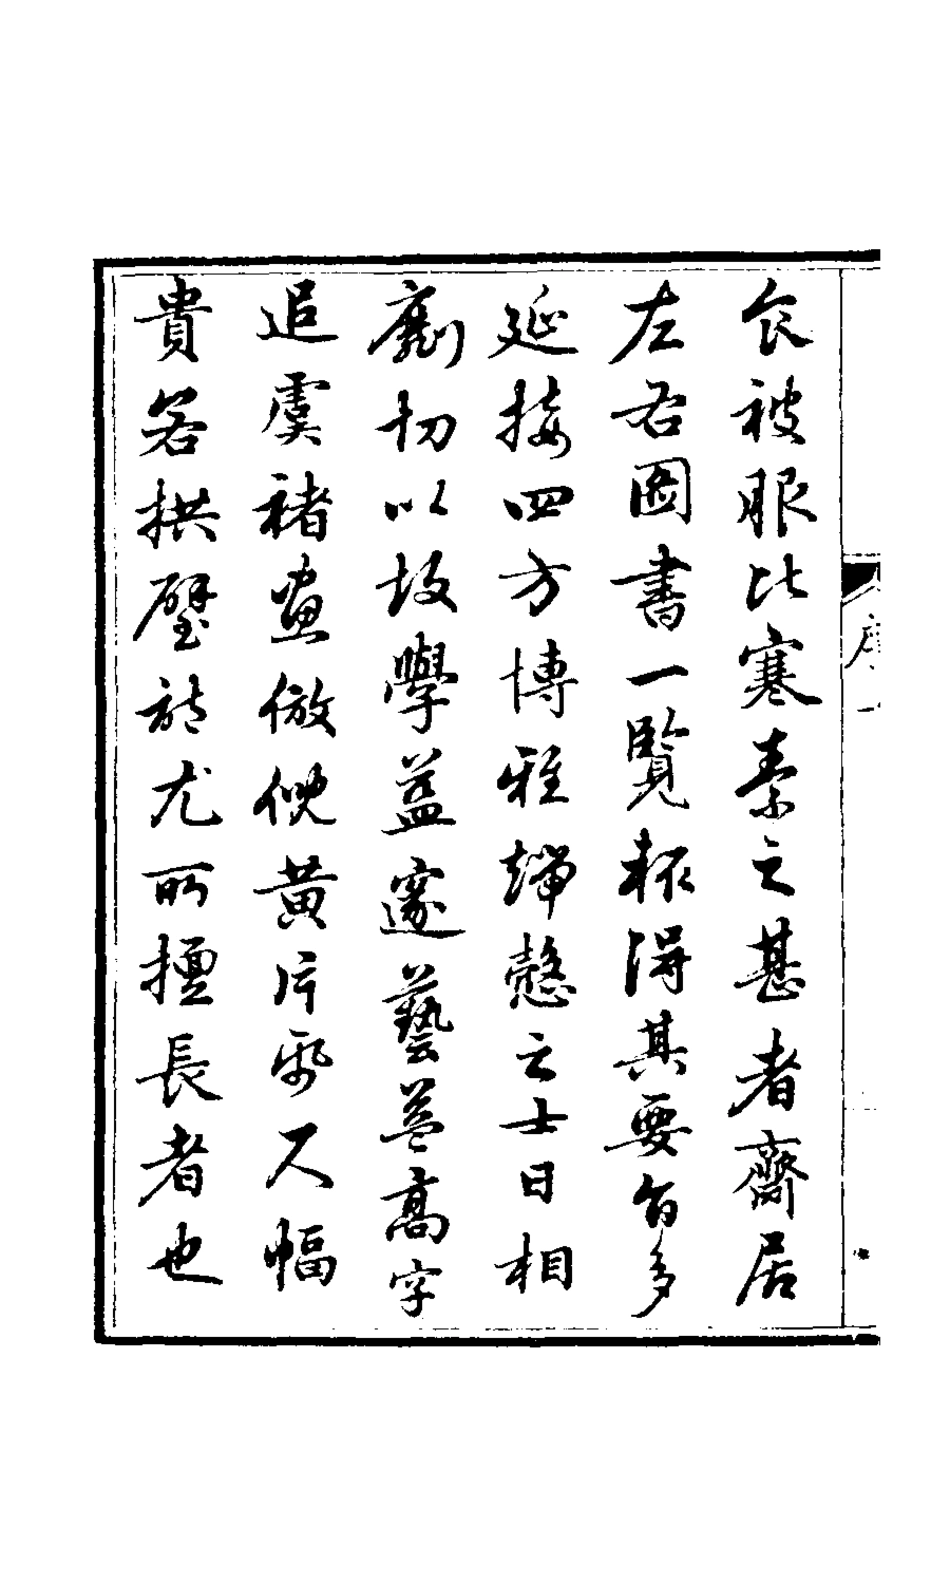 食被服比寒素之甚者齋居
左右圖書一覽輒得其要旨多
延接四方博雅端愨之士日相
劘切以故學益邃藝益高字
追虞褚畫倣倪黃片紙尺幅
貴若拱璧詩尤所擅長者也
序
一